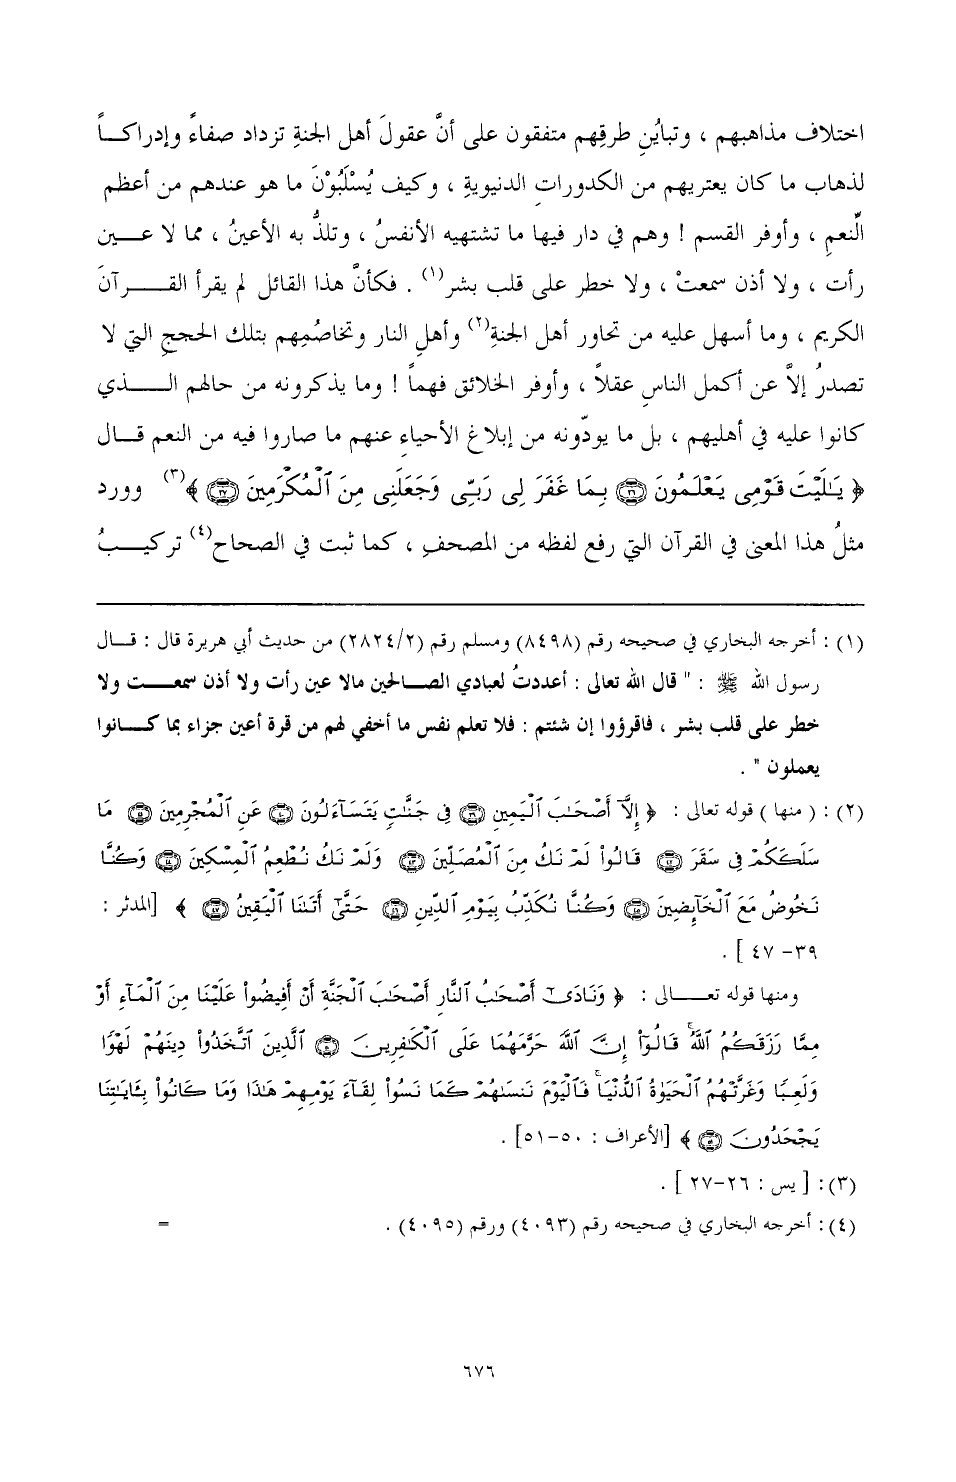 اختلاف مذاهبهم ، وتباينِ طرقِهم متفقون على أنَّ عقولَ أهل الجنةِ تزداد صفاءً وإدراكاً
لذهاب ما كان يعتريهم من الكدوراتِ الدنيويةِ ، وكيف يُسْلَبُوْنَ ما هو عندهم من أعظم
النِّعمِ ، وأوفر القسم ! وهم في دار فيها ما تشتهيه الأنفسُ ، وتلذُّ به الأعينُ ، مما لا عين
رأت ، ولا أذن سمعتْ ، ولا خطر على قلب بشر(١) . فكأنَّ هذا القائل لم يقرأ القرآنَ
الكريم ، وما أسهل عليه من تحاور أهل الجنةِ(٢) وأهلِ النار وتخاصُمِهم بتلك الحججِ التي لا
تصدرُ إلاَّ عن أكمل الناسِ عقلاً ، وأوفر الخلائق فهماً ! وما يذكرونه من حالهم الذي
كانوا عليه في أهليهم ، بل ما يودّونه من إبلاغ الأحياءِ عنهم ما صاروا فيه من النعم قال
﴿ يَـٰلَيْتَ قَوْمِى يَعْلَمُونَ ٢٦ بِمَا غَفَرَ لِى رَبِّى وَجَعَلَنِى مِنَ ٱلْمُكْرَمِينَ ٢٧ ﴾(٣) وورد
مثلُ هذا المعنى في القرآن التي رفع لفظه من المصحفِ ، كما ثبت في الصحاح(٤) تركيبُ
(١) : أخرجه البخاري في صحيحه رقم (٨٤٩٨) ومسلم رقم (٢٨٢٤/٢) من حديث أبي هريرة قال : قال
رسول الله ﷺ : " قال الله تعالى : أعددتُ لعبادي الصالحين مالا عين رأت ولا أذن سمعت ولا
خطر على قلب بشر ، فاقرؤوا إن شئتم : فلا تعلم نفس ما أخفي لهم من قرة أعين جزاء بما كانوا
يعملون " .
(٢) : ( منها ) قوله تعالى : ﴿ إِلَّآ أَصْحَـٰبَ ٱلْيَمِينِ ٣٩ فِى جَنَّـٰتٍ يَتَسَآءَلُونَ ٤٠ عَنِ ٱلْمُجْرِمِينَ ٤١ مَا
سَلَكَكُمْ فِى سَقَرَ ٤٢ قَالُوا۟ لَمْ نَكُ مِنَ ٱلْمُصَلِّينَ ٤٣ وَلَمْ نَكُ نُطْعِمُ ٱلْمِسْكِينَ ٤٤ وَكُنَّا
نَخُوضُ مَعَ ٱلْخَآئِضِينَ ٤٥ وَكُنَّا نُكَذِّبُ بِيَوْمِ ٱلدِّينِ ٤٦ حَتَّىٰٓ أَتَىٰنَا ٱلْيَقِينُ ٤٧ ﴾ [المدثر :
٣٩- ٤٧ ] .
ومنها قوله تعالى : ﴿ وَنَادَىٰٓ أَصْحَـٰبُ ٱلنَّارِ أَصْحَـٰبَ ٱلْجَنَّةِ أَنْ أَفِيضُوا۟ عَلَيْنَا مِنَ ٱلْمَآءِ أَوْ
مِمَّا رَزَقَكُمُ ٱللَّهُ ۚ قَالُوٓا۟ إِنَّ ٱللَّهَ حَرَّمَهُمَا عَلَى ٱلْكَـٰفِرِينَ ٥٠ ٱلَّذِينَ ٱتَّخَذُوا۟ دِينَهُمْ لَهْوًا
وَلَعِبًا وَغَرَّتْهُمُ ٱلْحَيَوٰةُ ٱلدُّنْيَا ۚ فَٱلْيَوْمَ نَنسَىٰهُمْ كَمَا نَسُوا۟ لِقَآءَ يَوْمِهِمْ هَـٰذَا وَمَا كَانُوا۟ بِـَٔايَـٰتِنَا
يَجْحَدُونَ ٥١ ﴾ [الأعراف : ٥٠-٥١] .
(٣) : [ يس : ٢٦-٢٧ ] .
(٤) : أخرجه البخاري في صحيحه رقم (٤٠٩٣) ورقم (٤٠٩٥) . =
٦٧٦